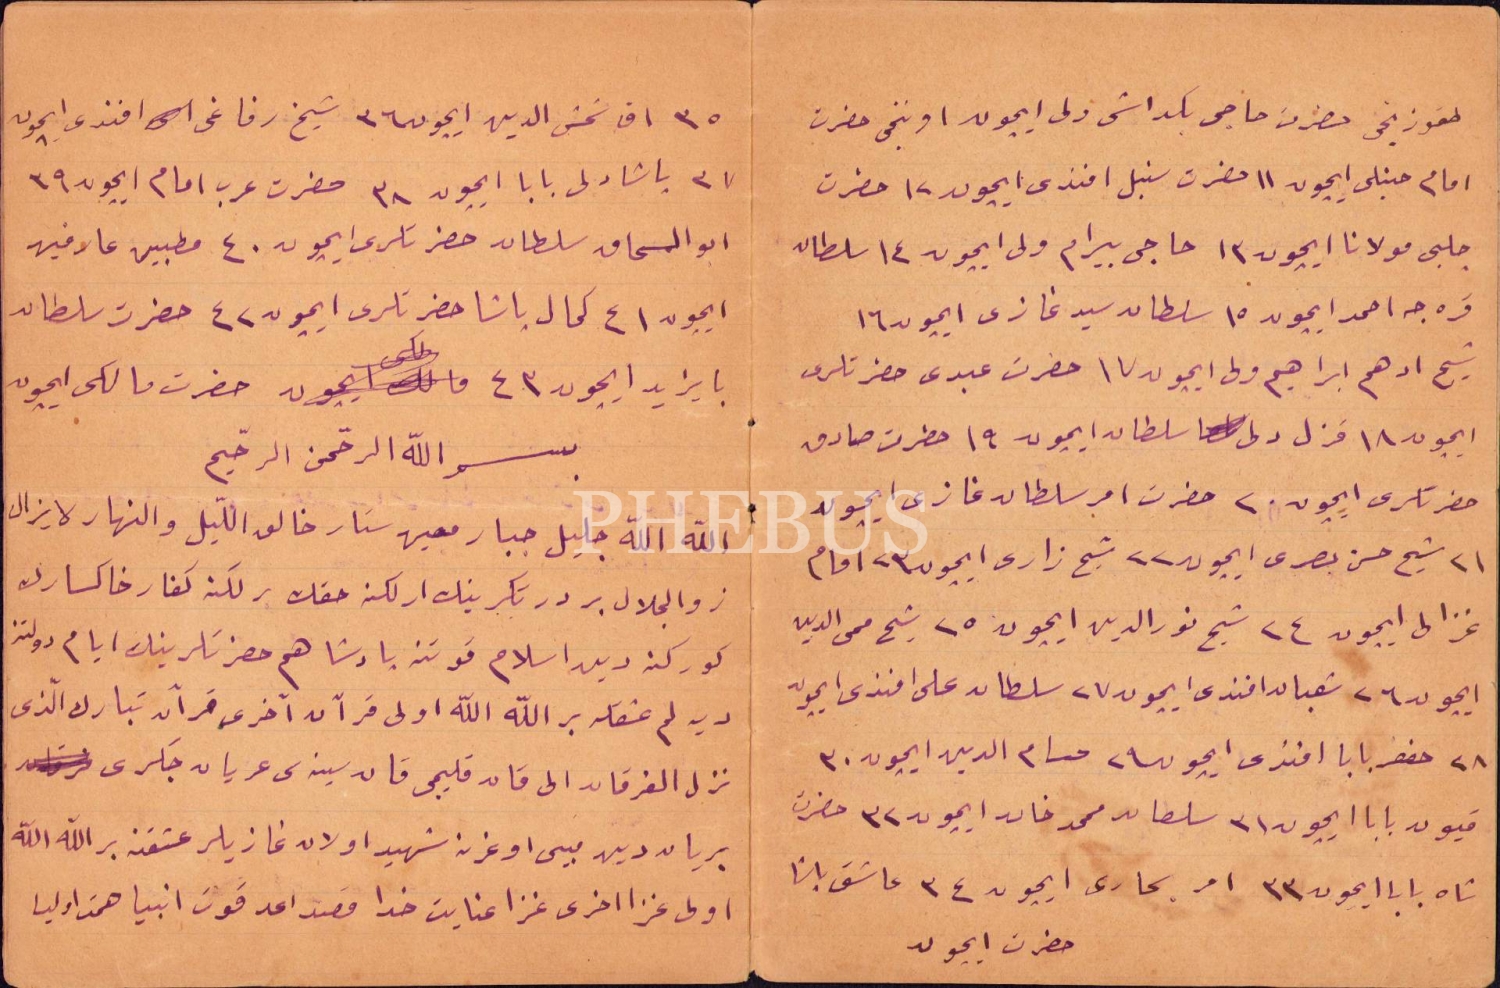 طقوزنجى حضرت حاجى بكداشى ولى ايچون اوننجى حضرت
امام حنبلى ايچون ١١ حضرت سنبل افندى ايچون ١٢ حضرت
چلبى مولانا ايچون ١٣ حاجى بيرام ولى ايچون ١٤ سلطان
قره جه احمد ايچون ١٥ سلطان سيد غازى ايچون ١٦
شيخ ادهم ابراهيم ولى ايچون ١٧ حضرت عبدى حضرتلرى
ايچون ١٨ قزل دلى سلطان ايچون ١٩ حضرت صادق
حضرتلرى ايچون ٢٠ حضرت امر سلطان غازى ايچون
٢١ شيخ حسن بصرى ايچون ٢٢ شيخ زارى ايچون ٢٣ امام
غزالى ايچون ٢٤ شيخ نورالدين ايچون ٢٥ شيخ محى الدين
ايچون ٢٦ شعبان افندى ايچون ٢٧ سلطان على افندى ايچون
٢٨ خضر بابا افندى ايچون ٢٩ حسام الدين ايچون ٣٠
قيون بابا ايچون ٣١ سلطان محمد خان ايچون ٣٢ حضرت
شاه بابا ايچون ٣٣ امر بخارى ايچون ٣٤ عاشق پاشا
حضرت ايچون
٣٥ اق شمس الدين ايچون ٣٦ شيخ رفاعى افندى ايچون
٣٧ پاشا ولى بابا ايچون ٣٨ حضرت عرب امام ايچون ٣٩
ابو اسحاق سلطان حضرتلرى ايچون ٤٠ عارفين
ايچون ٤١ كمال پاشا حضرتلرى ايچون ٤٢ حضرت سلطان
بايزيد ايچون ٤٣ حضرت مالكى ايچون
بسم الله الرحمن الرحيم
الله الله جليل جبار معين ستار خالق الليل والنهار لايزال
زوالجلال بردر تكرينك ارلكنه حقك برلكنه كفار خاكسارك
كوركنه دين اسلام قوتنه پادشاهم حضرتلرينك ايام دولتنه
ديه لم عشقله بر الله الله اولى قرآن آخرى قرآن تبارك الذى
نزل الفرقان الى قان قليجى قان سينه سى عريان جكرى
بريان دين مبين اوغرنه شهيد اولان غازيلر عشقنه بر الله الله
اولى غزا اخرى غزا عنايت خدا قصد اعد قوت انبيا همت اوليا
PHEBUS